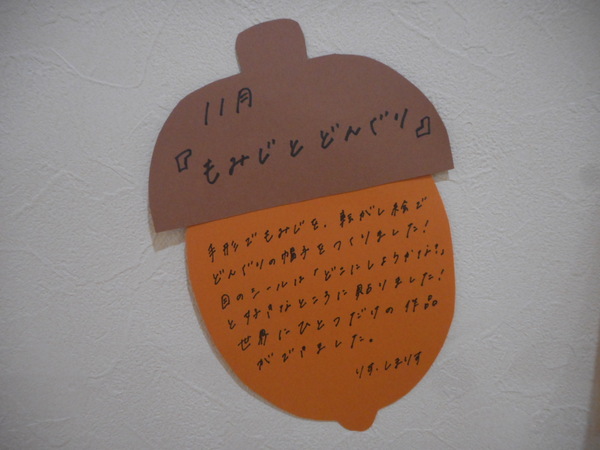 11月
『もみじとどんぐり』
手形でもみじを、転がし絵で
どんぐりの帽子をつくりました！
目のシールは「どこにしようかな？」
と好きなところに貼りました！
世界にひとつだけの作品
ができました。
りす、しまりす